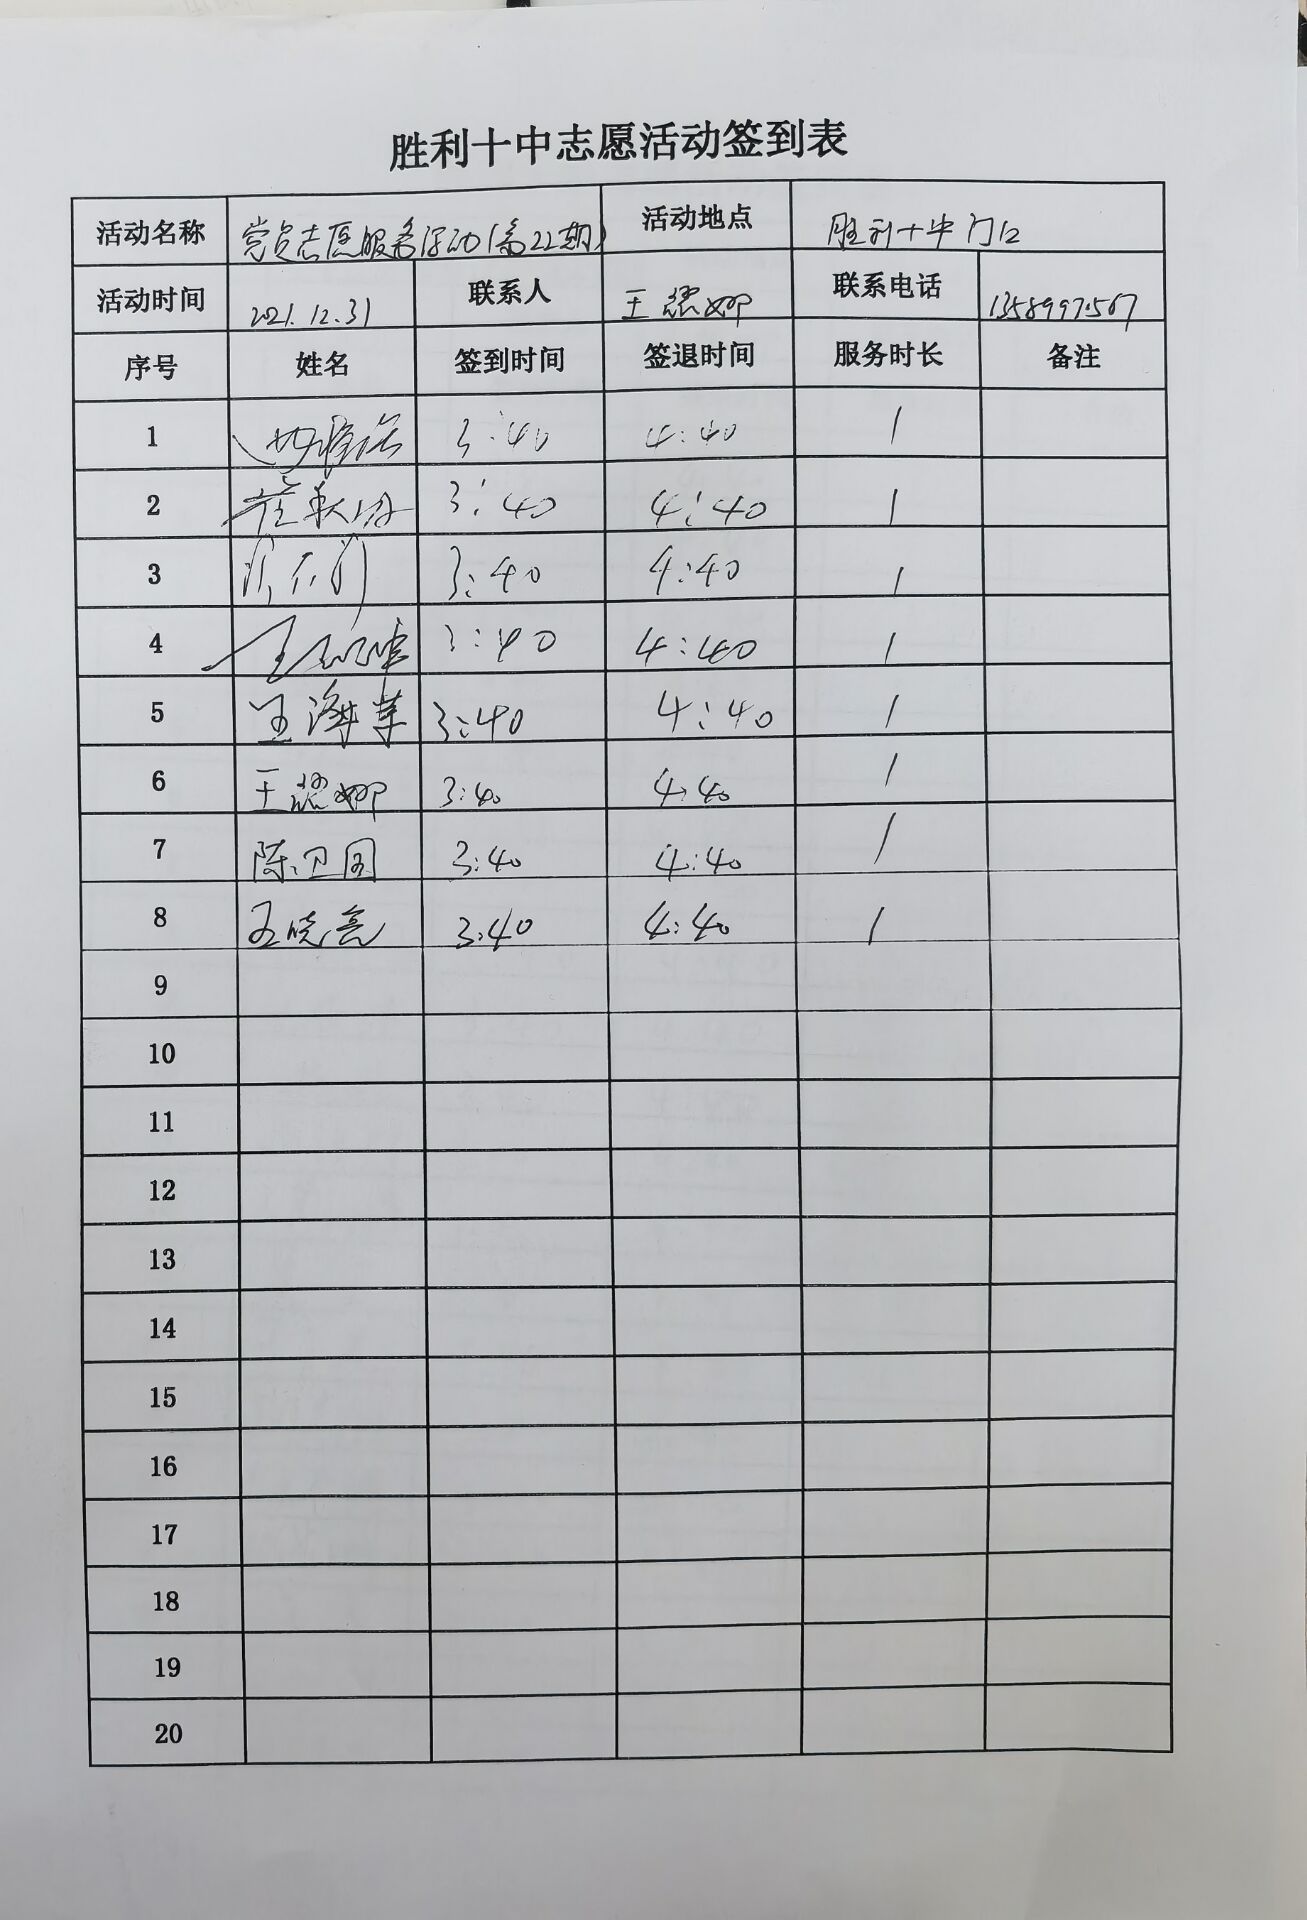 胜利十中志愿活动签到表
活动名称 党员志愿服务活动(第22期) 活动地点 胜利十中门口
活动时间 2021.12.31 联系人 王 娜 联系电话
序号 姓名 签到时间 签退时间 服务时长 备注
1 3:40 4:40 1
2 3:40 4:40 1
3 3:40 4:40 1
4 3:40 4:40 1
5 王海苹 3:40 4:40 1
6 王 娜 3:40 4:40 1
7 陈卫国 3:40 4:40 1
8 王晓亮 3:40 4:40 1
9
10
11
12
13
14
15
16
17
18
19
20